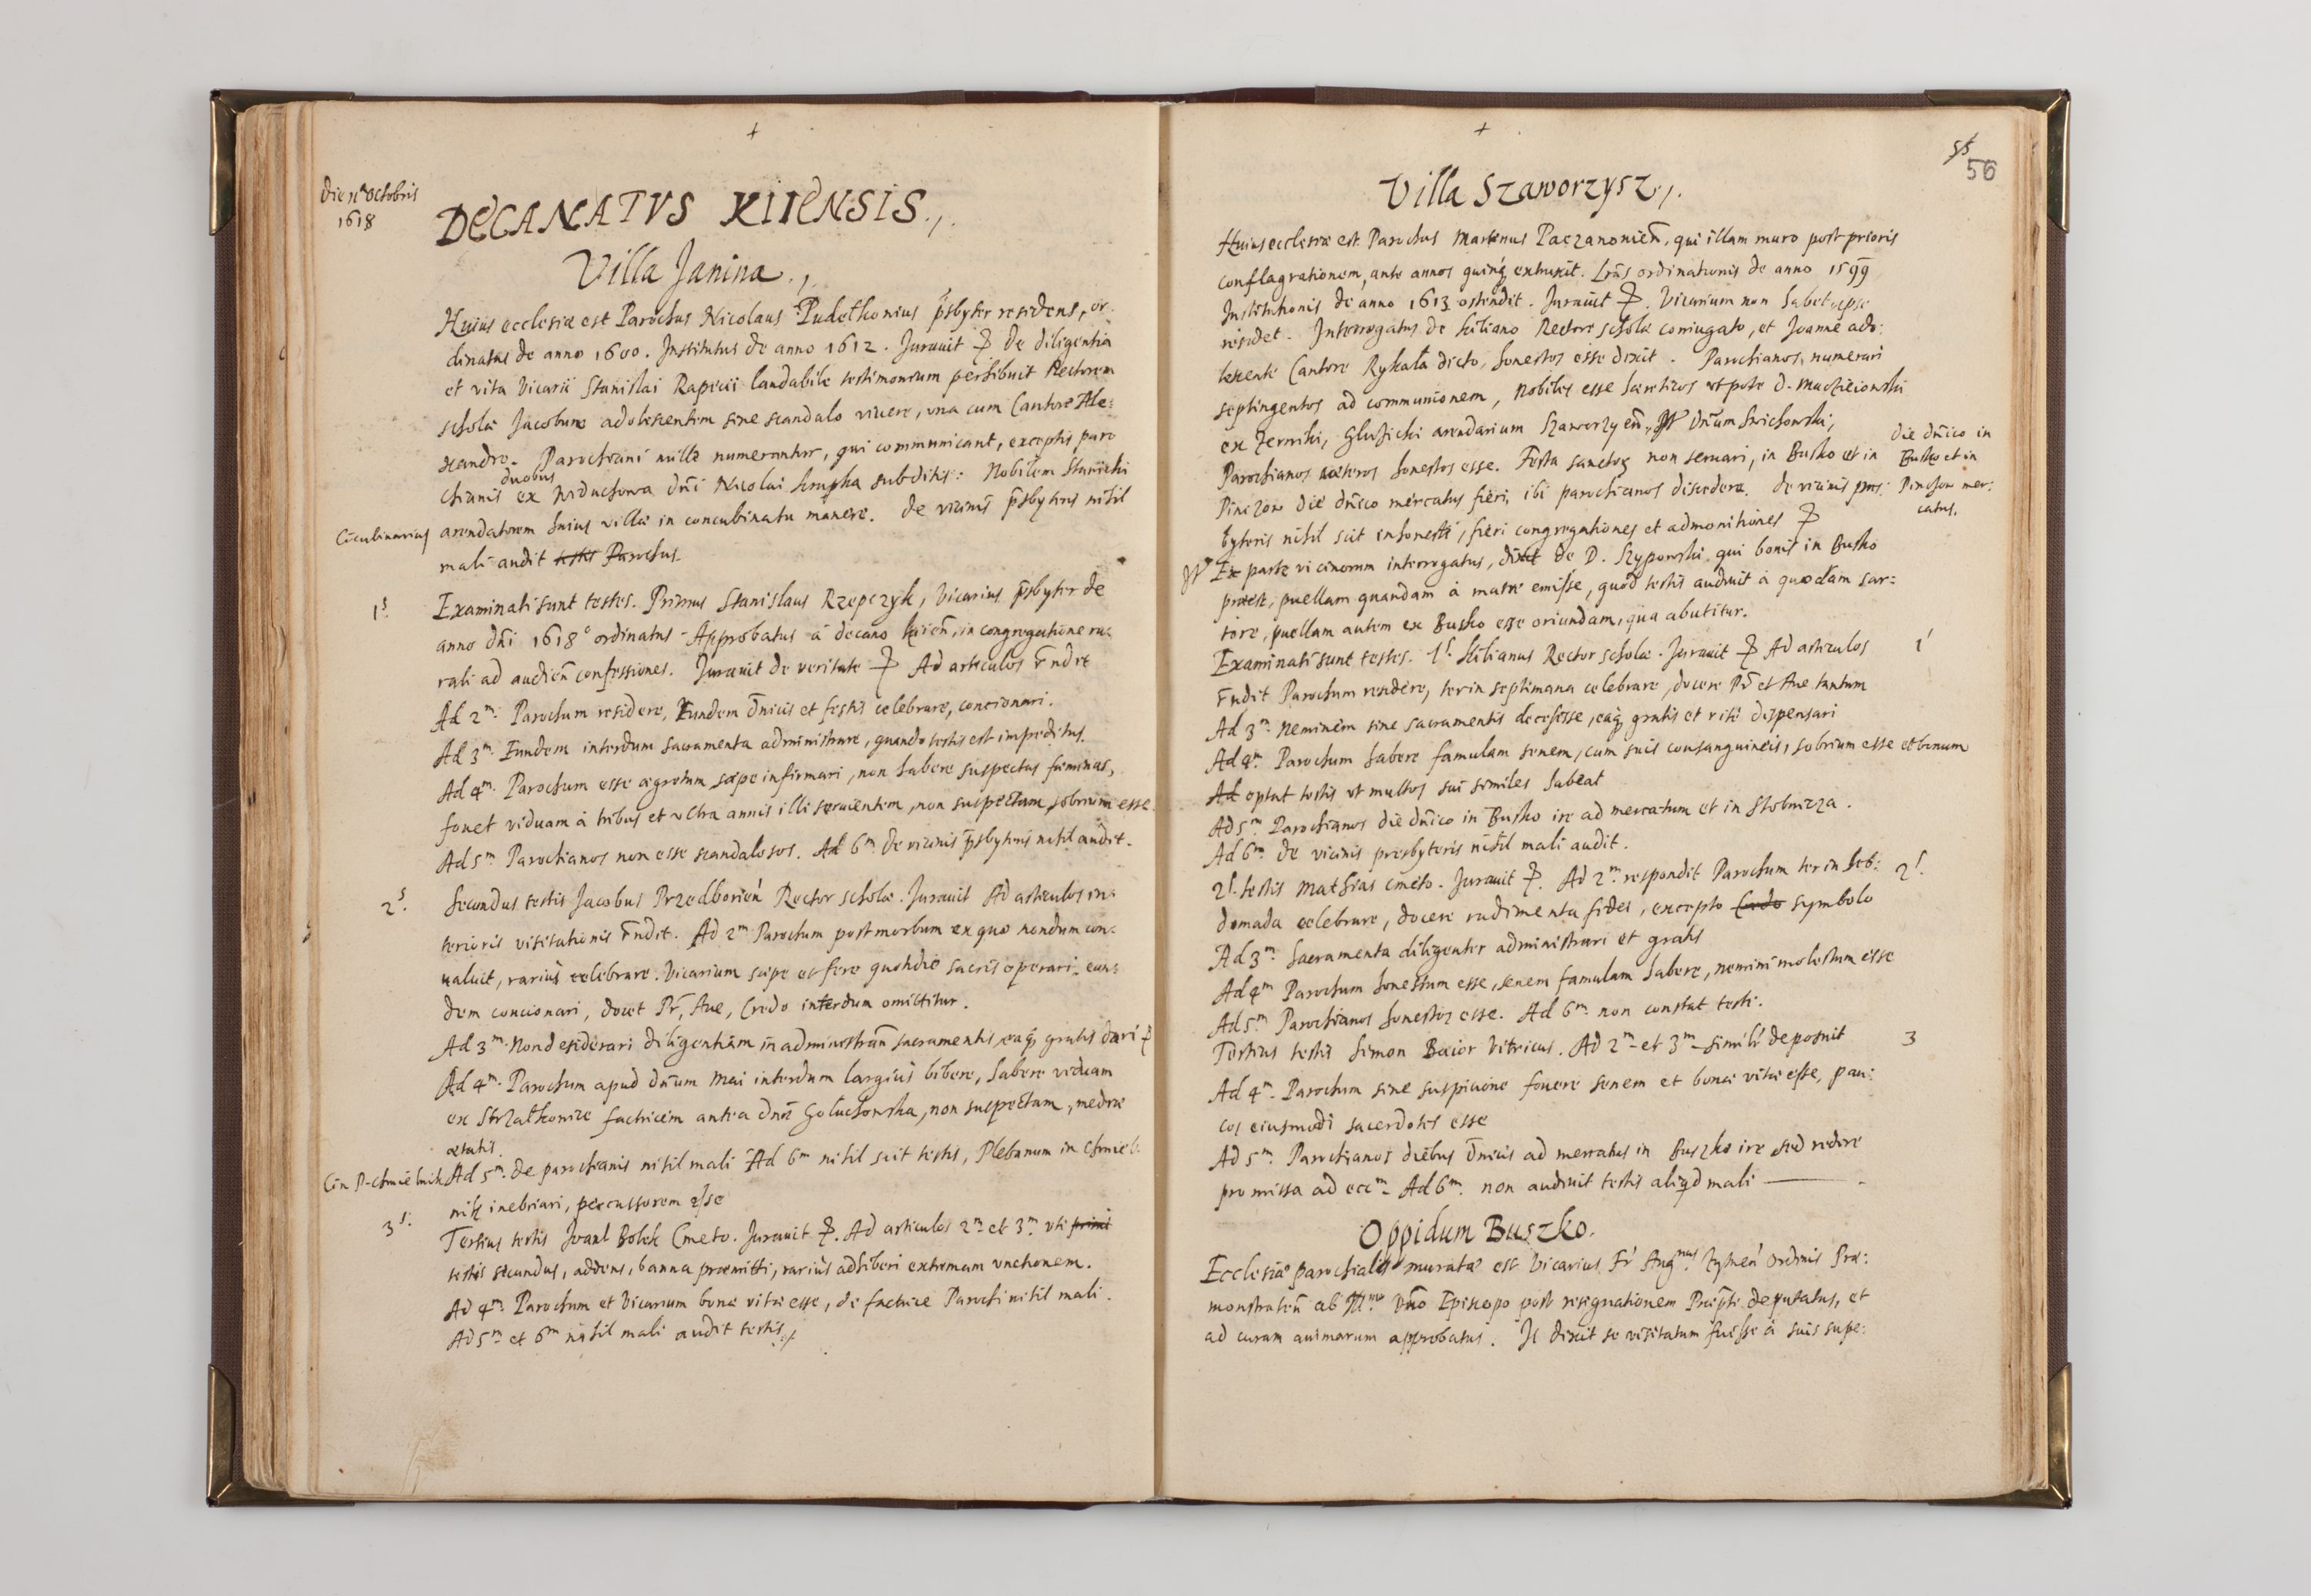 +
Die 11ª Octobris
1618
DECANATVS KIIENSIS.,
Villa Janina.,
Huius ecclesiæ est Parochus Nicolaus Pudethonius p̃sbyter residens, or:
dinatus de anno 1600. Institutus de anno 1612. Jurauit De diligentia
et vita Vicarii Stanislai Rapecii laudabile testimonium perhibuit Rectorem
scholæ Jacobum adolescentem sine scandalo viuere, vna cum Cantore Ale:
xandro. Parochiani mille numerantur, qui communicant, exceptis paro
duobus
chianis ex Widuchowa dñi Nicolai Krupka subditis: Nobilem Stawiski
Cõcubinarius
arendatorem huius villæ in concubinatu manere. De vicinis p̃sbyteris nihil
mali audit testis Parochus.
1ˢ.
Examinati sunt testes. Primus Stanislaus Rzepczyk, Vicarius p̃sbyter de
anno dñi 1618° ordinatus Approbatus à decano kiień, in congregatione ru:
rali ad audień confessiones. Jurauit de veritate Ad articulos r̃ndit
Ad 2ᵐ. Parochum residere, Eundem d̃nicis et festis celebrare, concionari.
Ad 3ᵐ. Eundem interdum sacramenta administrare, quando testis est impeditus.
Ad 4ᵐ. Parochum esse ægrotum sæpe infirmari, non habere suspectas fæminas,
fouet viduam à tribus et vltra annis illi seruientem, non suspectam, sobrium esse
Ad 5ᵐ Parochianos non esse scandalosos. Ad 6ᵐ. De vicinis p̃sbyteris nihil audit.
2ˢ.
Secundus testis Jacobus Przedborień Rector scholæ. Jurauit Ad articulos in:
terioris visitationis r̃ndit. Ad 2ᵐ Parochum post morbum ex quo nondum con:
ualuit, rariùs celebrare. Vicarium sæpe et fere quotidie sacris operari, eun:
dem concionari, docet Pr̃, Aue, Credo interdum omittitur.
Ad 3ᵐ. Non desiderari diligentiam in administrañ sacramentis, eaq; gratis dari
Ad 4ᵐ. Parochum apud dñum Mai interdum largiùs bibere, habere viduam
ex Strzałkowice factricem antea dnæ Goluchowska, non suspectam, mediæ
ætatis.
Cõn P. Chmielnik
Ad 5ᵐ. De parochianis nihil mali Ad 6ᵐ nihil scit testis, Plebanum in Chmiel:
nik inebriari, percussorem esse
3ˢ.
Tertius testis Bolek Cmeto. Jurauit. Ad articulos 2ᵐ et 3ᵐ. vti primi
testis secundus, addens, banna præmitti, rariùs adhiberi extremam vnctionem.
Ad 4ᵐ. Parochum et Vicarium bonæ vitæ esse, de factrice Parochi nihil mali.
Ad 5ᵐ et 6ᵐ nihil mali audit testis./
+
55
56
Villa Szaworzysz,.
Huius ecclesiæ est Parochus Martinus Paczanonień, qui illam muro post prioris
conflagrationem, ante annos quinq; extruxit. Lrãs ordinationis de anno 1599
Institutionis de anno 1613 ostendit. Jurauit. Vicarium non habet ipse
residet. Interrogatus de Kiliano Rectore scholæ coniugato, et Joanne ado:
lescente Cantore Rykała dicto, honestos esse dixit. Parochianos numerari
septingentos ad communionem, Nobiles esse hæreticos vt pote D.
ex Zerniki, Gluzicki arendarium Szaworzyeñ, dñum Swichowski,
Parochianos cæteros honestos esse. Festa sanctoꝝ non seruari, in Busko et in
Pinczow die dñico mercatus fieri, ibi parochianos discedere. De vicinis pres:
byteris nihil scit inhonesti, fieri congregationes et admonitiones
die dñico in
Busko et in
Pinczow mer:
catus.
Ex parte vicinorum interrogatus, dixit de D. Szyporski qui bonis in Busko
præest, puellam quandam à matre emisse, quod testis audiuit à quodam sar:
tore, puellam autem ex Busko esse oriundam, qua abutitur.
Examinati sunt testes. 1ˢ. Kilianus Rector scholæ. Jurauit Ad articulos
1ˢ
r̃ndit Parochum residere, ter in septimana celebrare, docere Pr̃ et Aue tantum
Ad 3ᵐ. Neminem sine sacramentis decessisse, eaq; gratis et ritè dispensari
Ad 4ᵐ. Parochum habere famulam senem, cum suis consanguineis, sobrium esse et bonum
Ad optat testis vt multos sui similes habeat
Ad 5ᵐ. Parochianos die dñico in Busko ire ad mercatum et in Stobnizza.
Ad 6ᵐ. De vicinis presbyteris nihil mali audit.
2ˢ. testis Mathias Cmeto. Jurauit. Ad 2ᵐ. respondit Parochum ter in heb:
2ˢ.
domada celebrare, docere rudimenta fidei, excepto Credo symbolo
Ad 3ᵐ. Sacramenta diligenter administrari et gratis
Ad 4ᵐ Parochum honestum esse, senem famulam habere, nemini molestum esse
Ad 5ᵐ. Parochianos honestos esse. Ad 6ᵐ. non constat testi.
Tertius testis Simon Vitricus. Ad 2ᵐ et 3ᵐ simili deposuit
3
Ad 4ᵐ. Parochum sine suspicione fouere senem et bonæ vitæ esse, pau:
cos eiusmodi sacerdotes esse
Ad 5ᵐ. Parochianos diebus d̃nicis ad mercatus in Buszko ire sed redire
pro missa ad eccᵐ. Ad 6ᵐ. non audiuit testis aliqd mali
Oppidum Buszko.
Ecclesiæ parochialis muratæ est Vicarius Fr̃ Augⁿᵘˢ. Ordinis Præ:
monstrateñ ab Illᵐᵒ Dño Episcopo post resignationem deputatus, et
ad curam animarum approbatus. Is dixit se visitatum fuisse à suis supe: